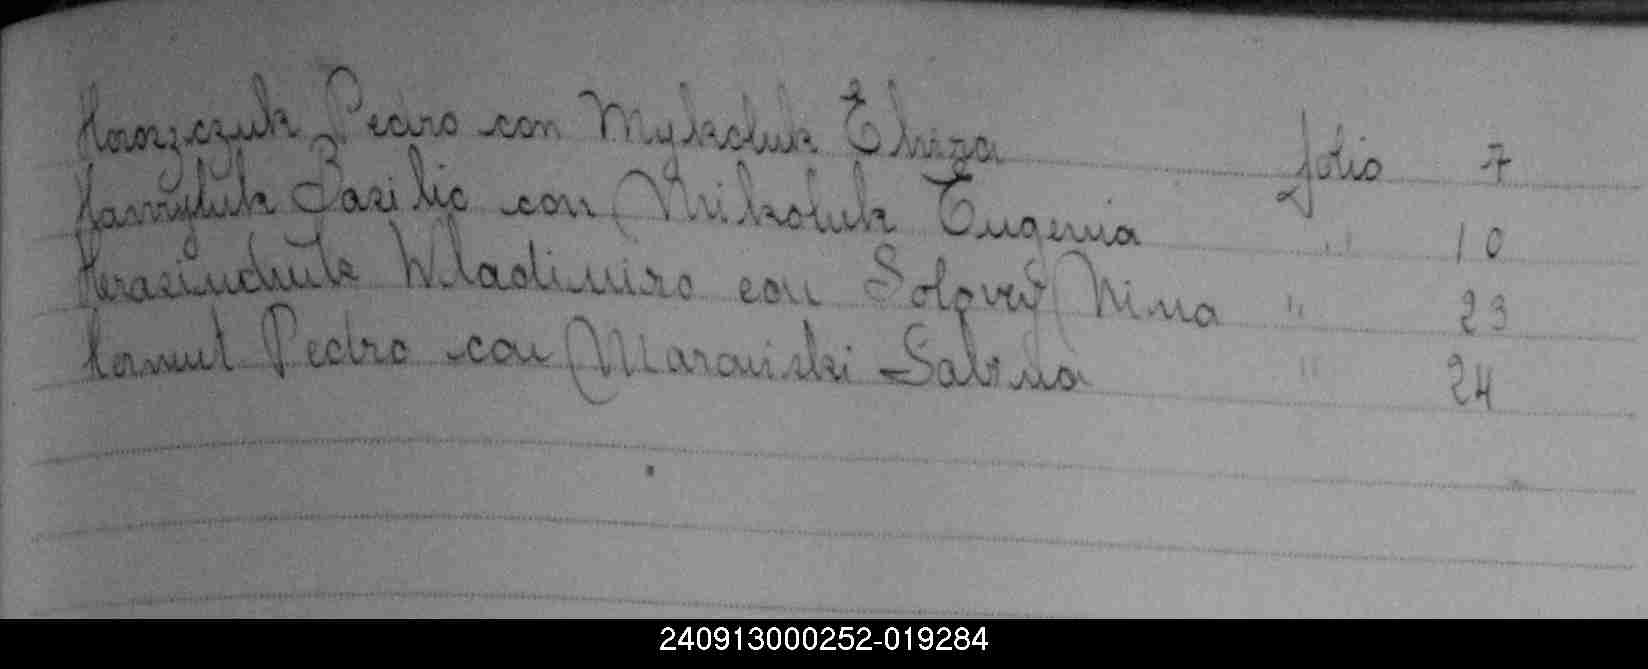 Horoszczuk Pedro con Mykoluk Eliza folio 7
Hawryluk Basilio con Mikoluk Eugenia " 10
Herasimchuk Wladimiro con Solovey Nina " 23
Hornut Pedro con Marowiski Sabina " 24
240913000252-019284